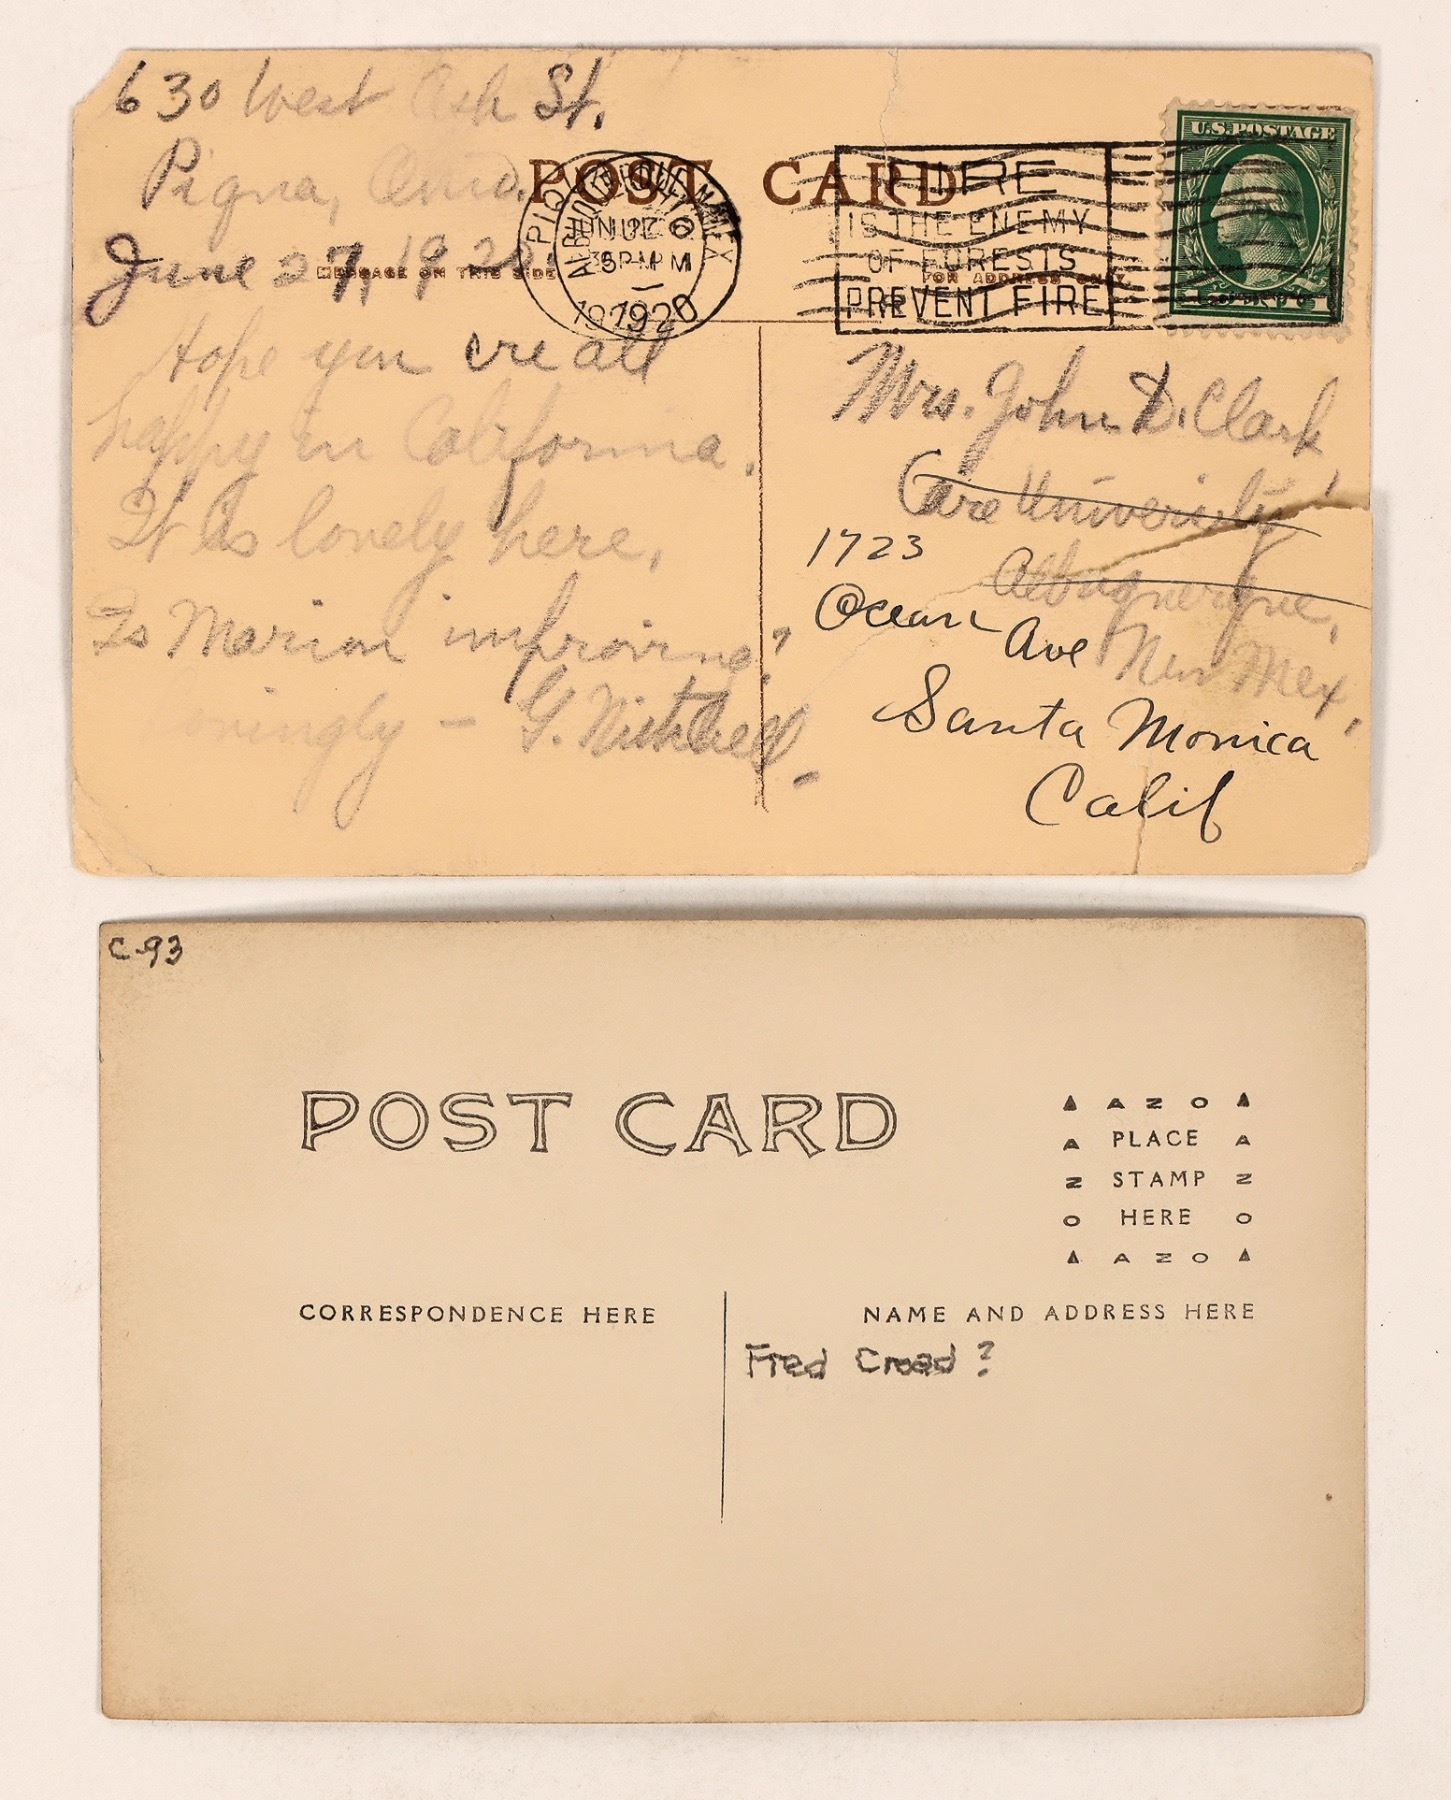 630 West Ash St.
Piqua, Ohio.
June 27, 1920.
POST CARD
MESSAGE ON THIS SIDE
FOR ADDRESS ONLY
1920
FIRE
IS THE ENEMY
OF FORESTS
PREVENT FIRE
U.S. POSTAGE
Hope you are all
happy in California.
It is lovely here.
Is Marion improving?
Lovingly – G. Mitchell.
Mrs. John D. Clark
Care University
Albuquerque,
New Mex.
1723
Ocean Ave
Santa Monica
Calif
C-93
POST CARD
AZO
PLACE
STAMP
HERE
AZO
CORRESPONDENCE HERE
NAME AND ADDRESS HERE
Fred Croad?